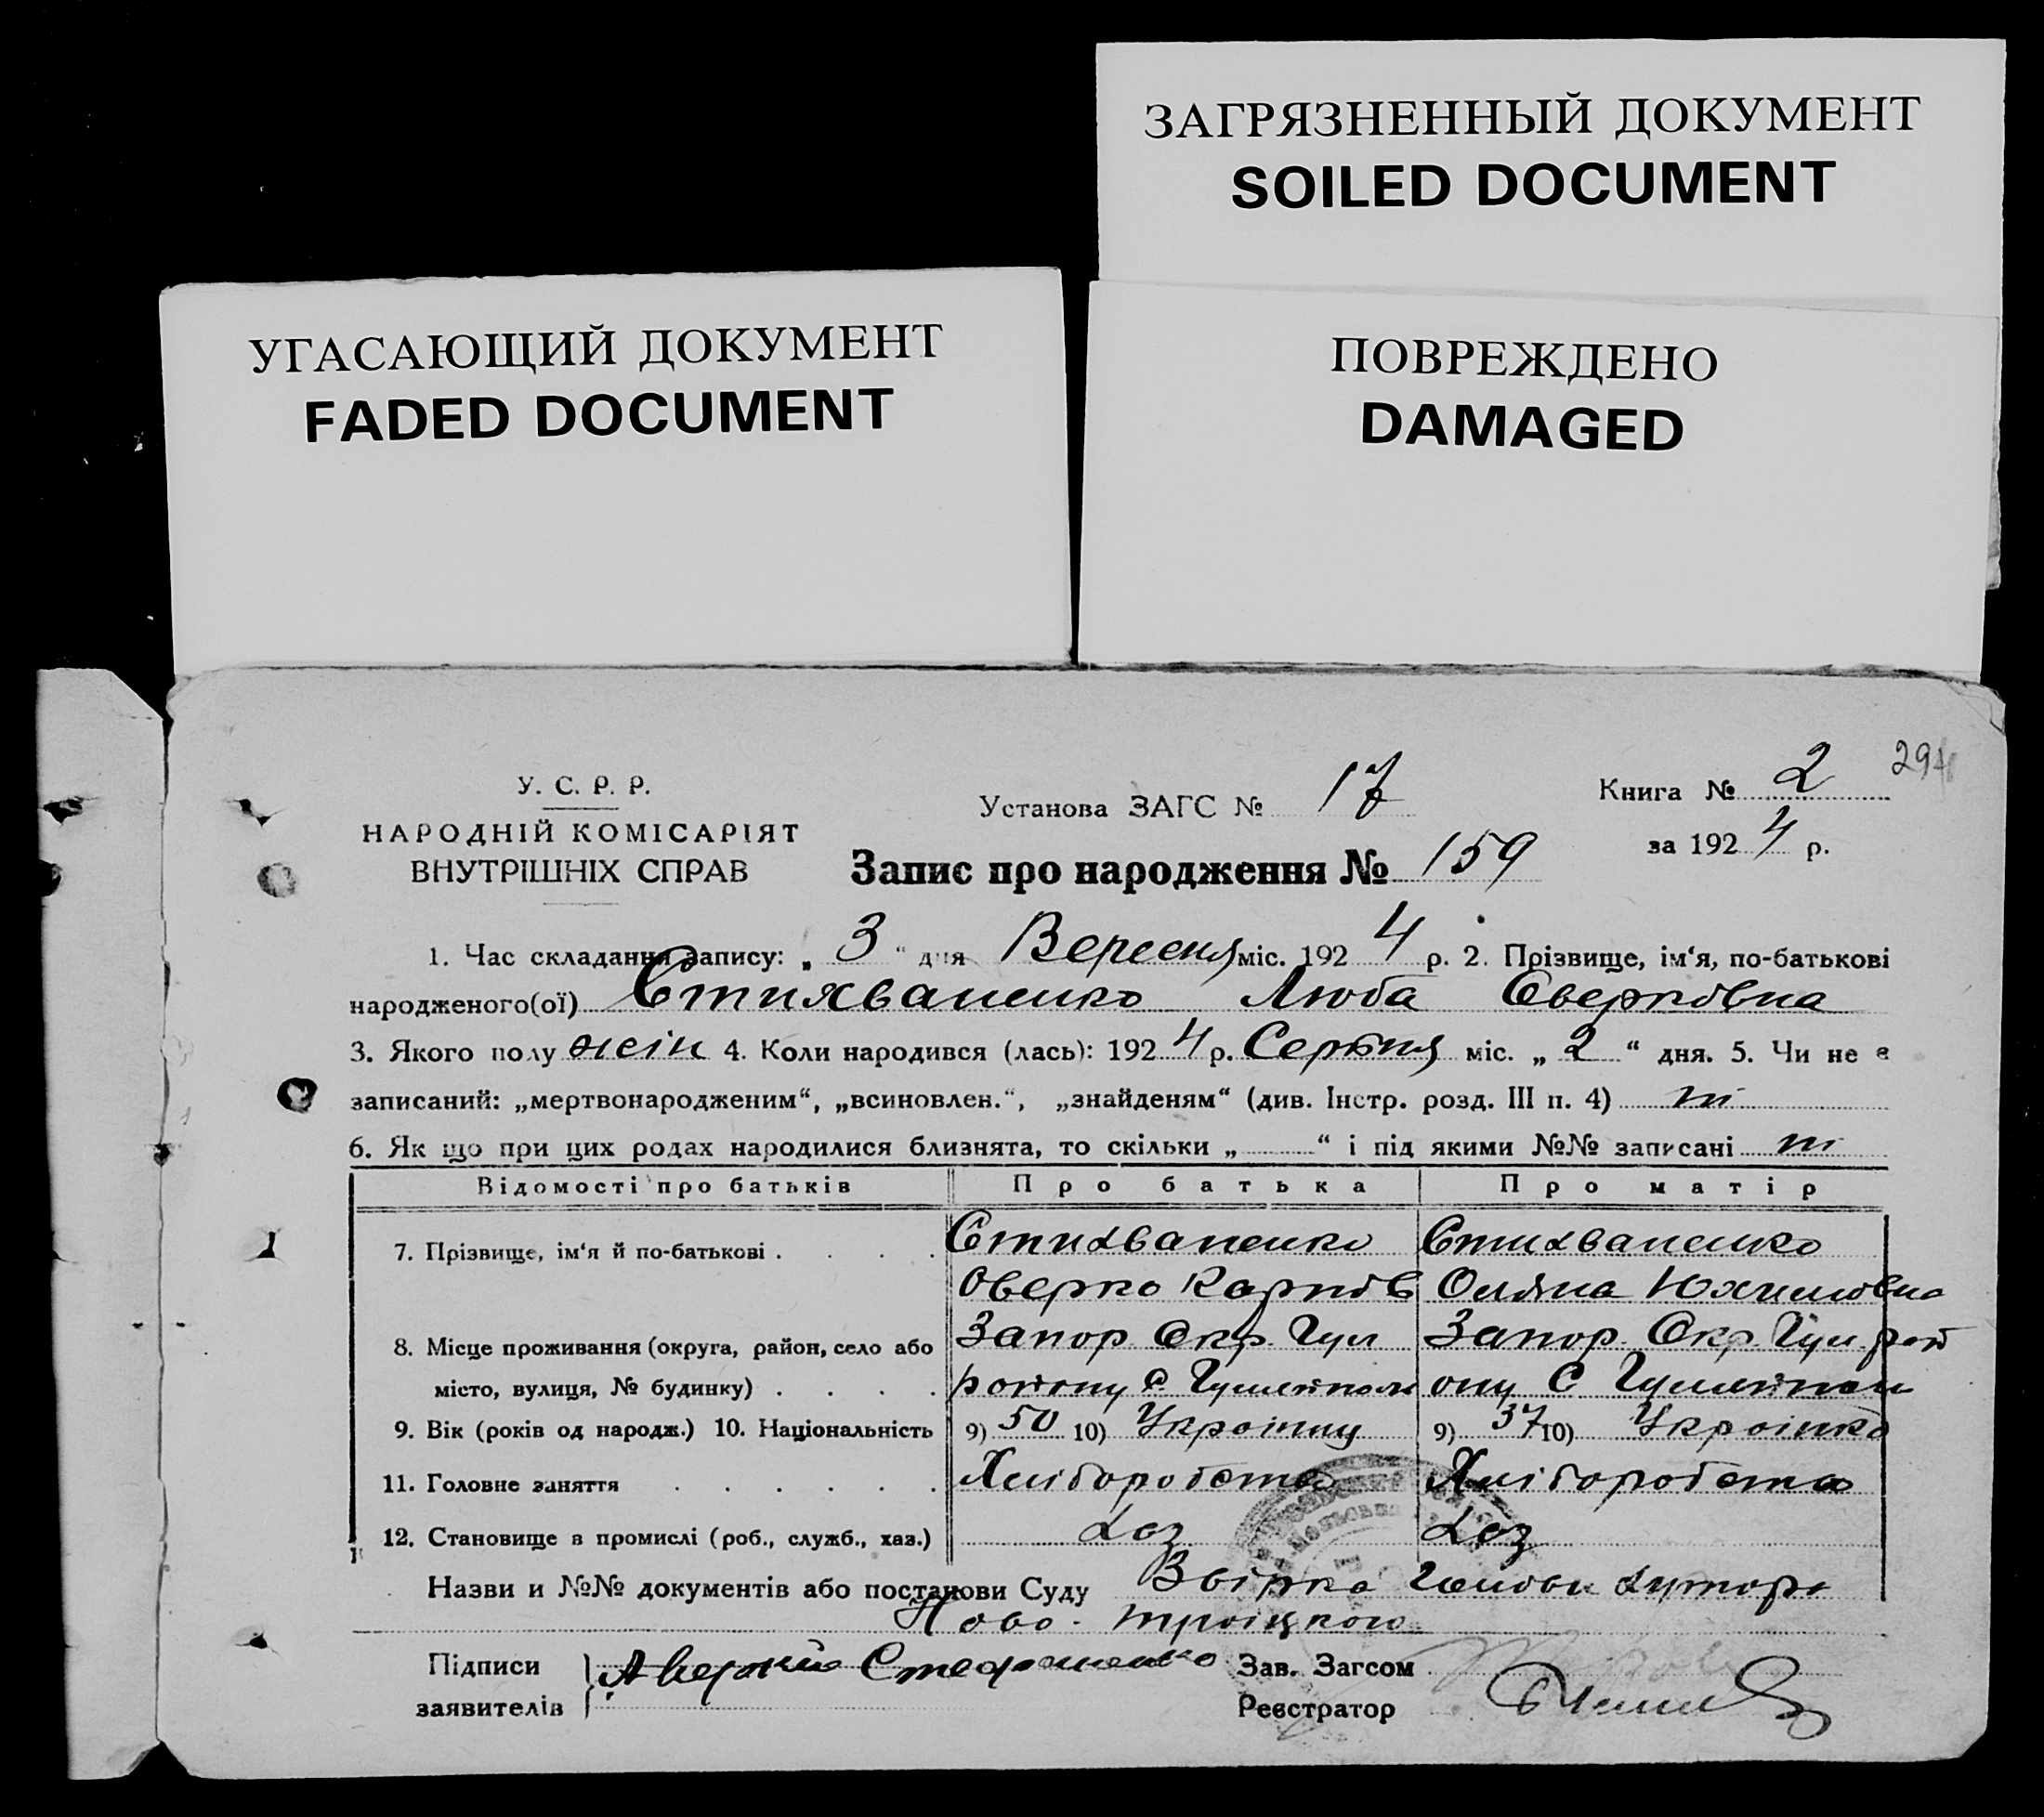 ЗАГРЯЗНЕННЫЙ ДОКУМЕНТ
SOILED DOCUMENT
УГАСАЮЩИЙ ДОКУМЕНТ
FADED DOCUMENT
ПОВРЕЖДЕНО
DAMAGED
У. С. Р. Р.
НАРОДНІЙ КОМІСАРІЯТ
ВНУТРІШНІХ СПРАВ
Установа ЗАГС № 17
Книга № 2 294
за 1924 р.
Запис про народження № 159
1. Час складання запису: „ 3 “ дня Вересня міс. 1924 р. 2. Прізвище, ім‘я, по-батькові
народженого(ої) Стихваненко Люба Оверковна
3. Якого полу жін 4. Коли народився (лась): 1924 р. Серпня міс. „ 2 “ дня. 5. Чи не є
записаний: „мертвонародженим“, „всиновлен.“, „знайденям“ (див. Інстр. розд. III п. 4) ні
6. Як що при цих родах народилися близнята, то скільки „ “ і під якими №№ записані ні
Відомості про батьків Про батька Про матір
7. Прізвище, ім‘я й по-батькові Стихваненко Стихваненко
Оверко Карпов Оляна Юхимовна
8. Місце проживання (округа, район, село або Запор. Окр. Гул Запор. Окр. Гул. рай
місто, вулиця, № будинку) району С Гуляйполе ону С Гуляйполе
9. Вік (років од народж.) 10. Національність 9) 50 10) Українец 9) 37 10) Українка
11. Головне заняття Хліборобство Хліборобство
12. Становище в промислі (роб., служб., хаз.) Хаз Хаз
Назви и №№ документів або постанови Суду Звірка Голови хутора
Ново-Троіцкого
Підписи Аверкий Зав. Загсом
заявителів Реєстратор